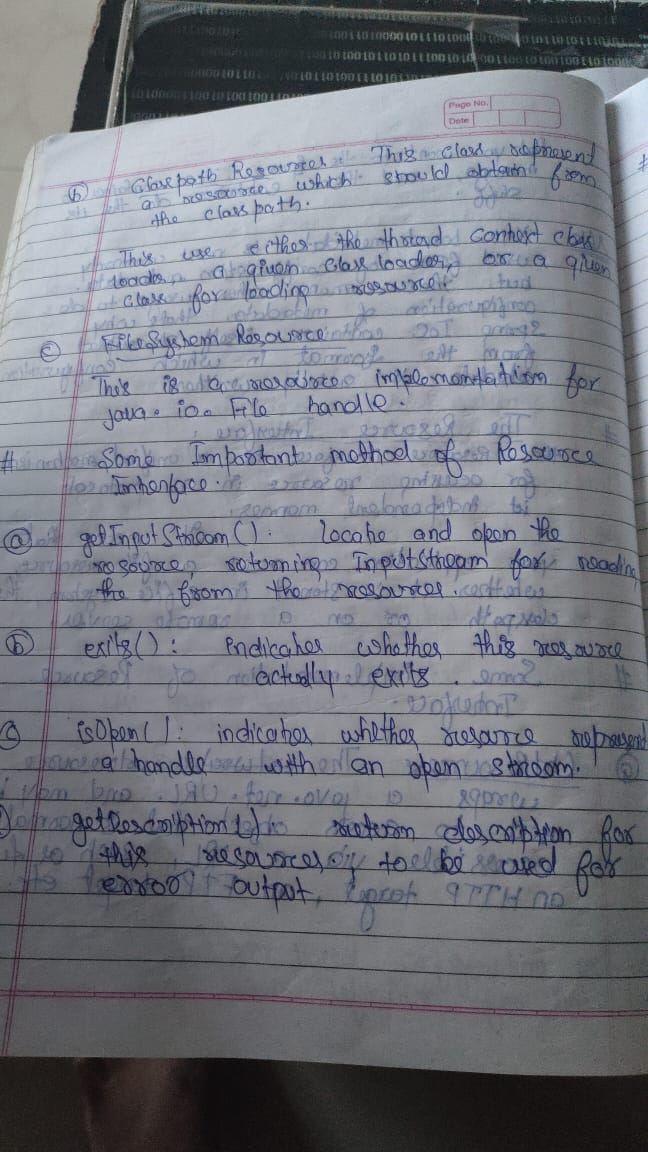 Page No.
Date
(b) Classpath Resources : This class represent
a resource which should obtain from
the classpath.
This use either the thread context class
loader, a given class loader, or a given
class for loading resource.
(c) FileSystem Resource
This is a resource implementation for
java.io.File handle.
# Some Important method of Resource
Interface.
(a) getInputStream(): locate and open the
resource, returning InputStream for reading
the from the resource.
(b) exits(): indicates whether this resource
actually exits.
(c) isOpen(): indicates whether resource represent
a handle with an open stream.
getDescription() return description for
this resources to be used for
error output,